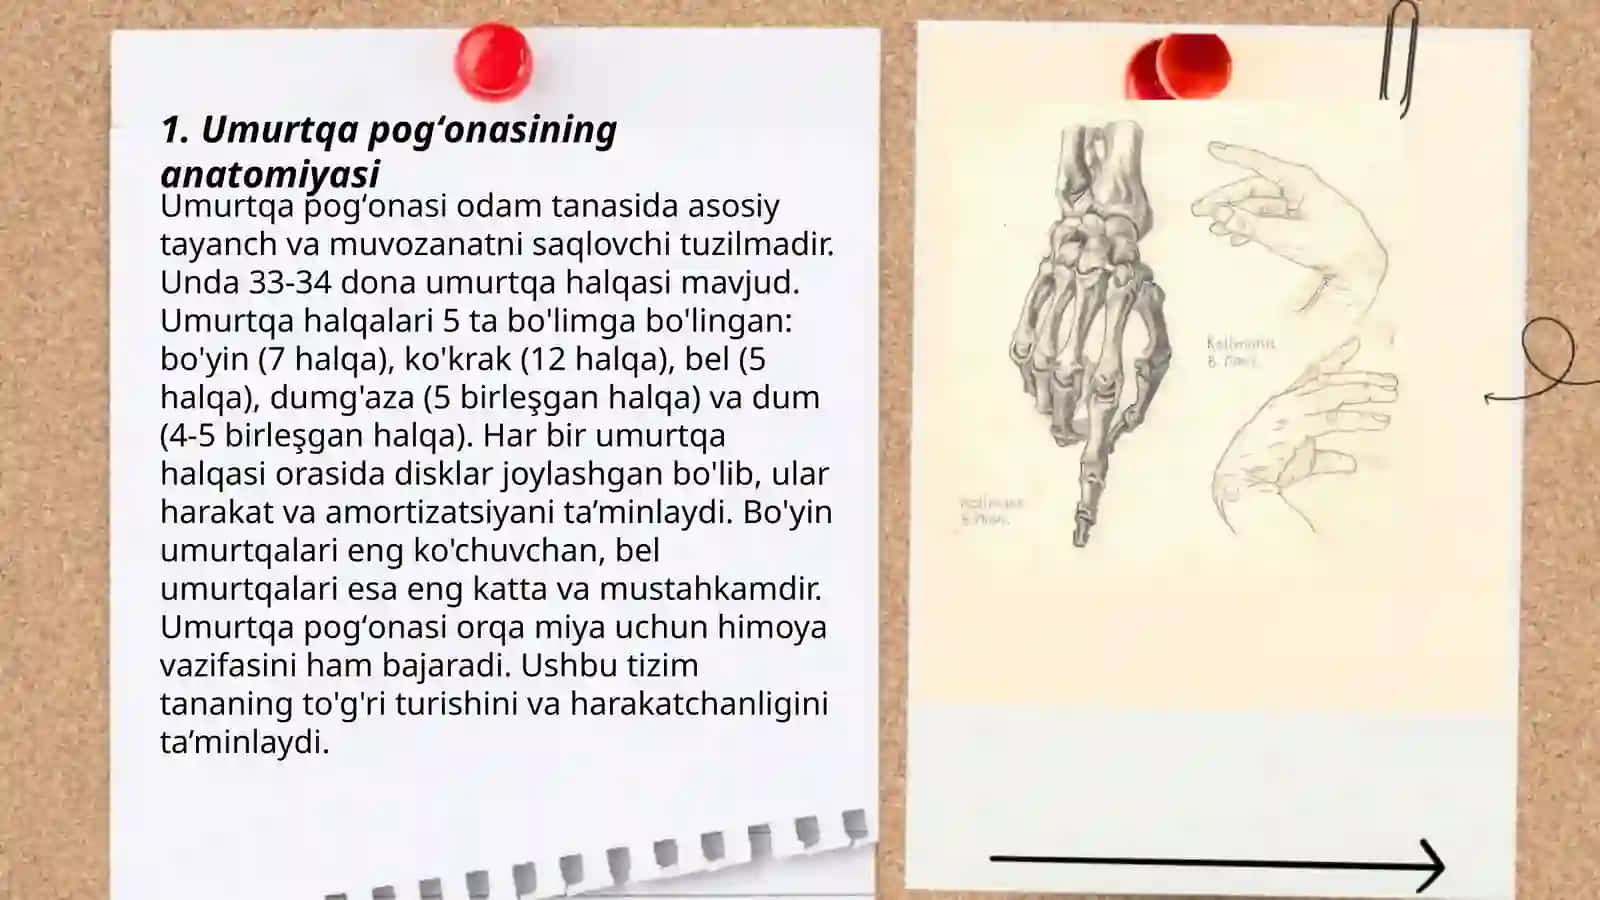 1. Umurtqa pog‘onasining
anatomiyasi
Umurtqa pog‘onasi odam tanasida asosiy
tayanch va muvozanatni saqlovchi tuzilmadir.
Unda 33-34 dona umurtqa halqasi mavjud.
Umurtqa halqalari 5 ta bo'limga bo'lingan:
bo'yin (7 halqa), ko'krak (12 halqa), bel (5
halqa), dumg'aza (5 birleşgan halqa) va dum
(4-5 birleşgan halqa). Har bir umurtqa
halqasi orasida disklar joylashgan bo'lib, ular
harakat va amortizatsiyani ta’minlaydi. Bo'yin
umurtqalari eng ko'chuvchan, bel
umurtqalari esa eng katta va mustahkamdir.
Umurtqa pog‘onasi orqa miya uchun himoya
vazifasini ham bajaradi. Ushbu tizim
tananing to'g'ri turishini va harakatchanligini
ta’minlaydi.